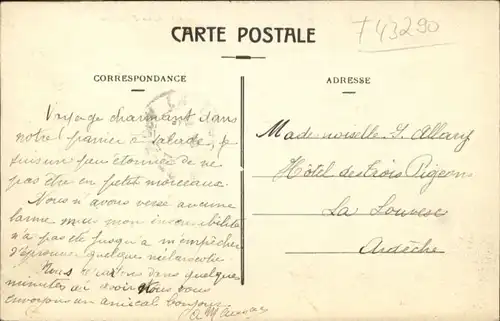 T 43290
CARTE POSTALE
CORRESPONDANCE
Voyage charmant dans
notre panier à salade, je
suis un peu étonnée de ne
pas être en petits morceaux.
Nous n'avons versé aucune
larme mais mon insensibilité
n'a pas été jusqu'à m'empêcher
d'éprouver quelque mélancolie.
Nous dans quelques
minutes et avons vous
envoyons un amical bonjour
ADRESSE
Mademoiselle S. Allary
Hôtel des trois Pigeons
La Louvesc
Ardèche